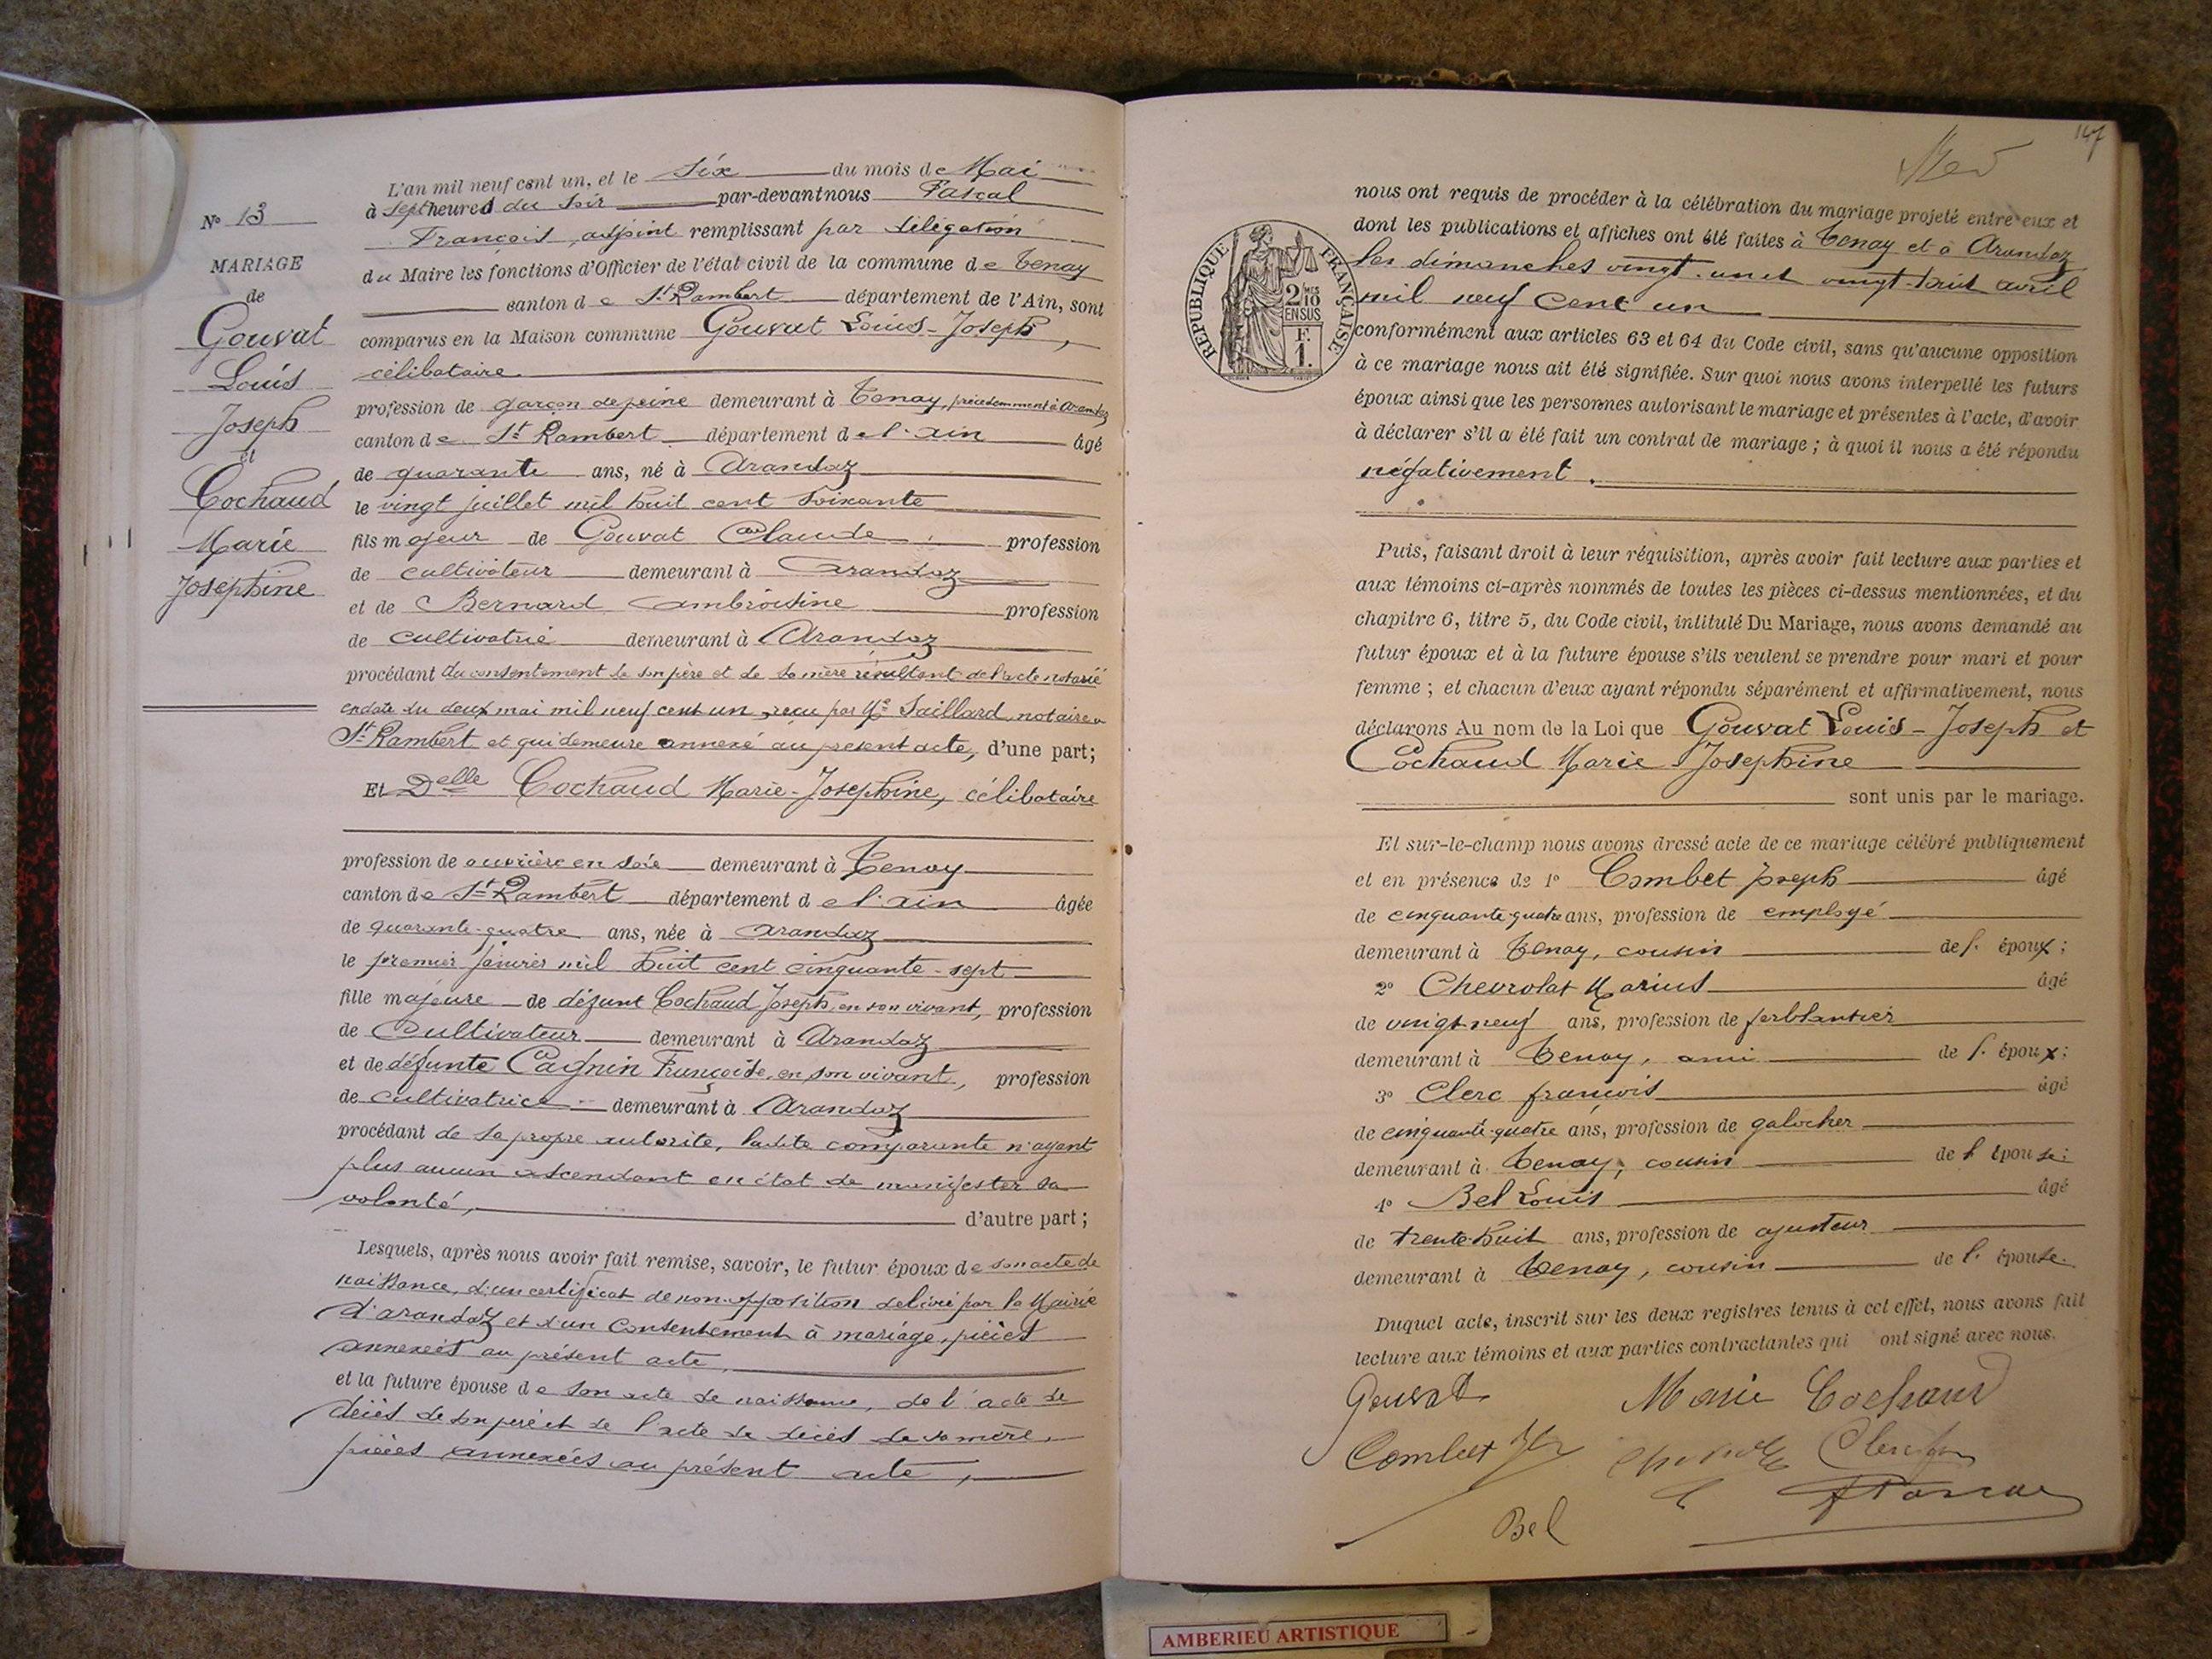 N° 13
MARIAGE
de
Gouvat
Louis
Joseph
et
Cochaud
Marie
Josephine
L'an mil neuf cent un, et le six du mois de Mai
à sept heures du soir par-devant nous Pascal
François, adjoint remplissant par délégation
du Maire les fonctions d'Officier de l'état civil de la commune de Tenay
canton de St Rambert département de l'Ain, sont
comparus en la Maison commune Gouvat Louis-Joseph,
célibataire
profession de garçon de peine demeurant à Tenay, précédemment à Arandaz
canton de St Rambert département de l'ain âgé
de quarante ans, né à Arandaz
le vingt juillet mil huit cent soixante
fils majeur de Gouvat Claude profession
de cultivateur demeurant à Arandaz
et de Bernard Ambroisine profession
de cultivatrie demeurant à Arandaz
procédant du consentement de son père et de sa mère résultant de l'acte notarié
en date du deux mai mil neuf cent un, reçu par Me Saillard, notaire à
St Rambert et qui demeure annexé au présent acte, d'une part;
Et Delle Cochaud Marie-Josephine, célibataire
profession de ouvrière en soie demeurant à Tenay
canton de St Rambert département de l'ain âgée
de quarante-quatre ans, née à Arandaz
le premier janvier mil huit cent cinquante-sept
fille majeure de défunt Cochaud Joseph, en son vivant, profession
de Cultivateur demeurant à Arandaz
et de défunte Cagnin Françoise, en son vivant, profession
de cultivatrice demeurant à Arandaz
procédant de sa propre autorité, ladite comparante n'ayant
plus aucun ascendant en état de manifester sa
volonté, d'autre part;
Lesquels, après nous avoir fait remise, savoir, le futur époux de son acte de
naissance, d'un certificat de non-opposition délivré par la Mairie
d'arandaz et d'un consentement à mariage, pièces
annexées au présent acte,
et la future épouse de son acte de naissance, de l'acte de
décès de son père et de l'acte de décès de sa mère,
pièces annexées au présent acte,
147
RÉPUBLIQUE FRANÇAISE
2/10MES
EN SUS
F.
1.
nous ont requis de procéder à la célébration du mariage projeté entre eux et
dont les publications et affiches ont été faites à Tenay et à Arandaz
les dimanches vingt-un et vingt-huit avril
mil neuf cent un
conformément aux articles 63 et 64 du Code civil, sans qu'aucune opposition
à ce mariage nous ait été signifiée. Sur quoi nous avons interpellé les futurs
époux ainsi que les personnes autorisant le mariage et présentes à l'acte, d'avoir
à déclarer s'il a été fait un contrat de mariage; à quoi il nous a été répondu
négativement.
Puis, faisant droit à leur réquisition, après avoir fait lecture aux parties et
aux témoins ci-après nommés de toutes les pièces ci-dessus mentionnées, et du
chapitre 6, titre 5, du Code civil, intitulé Du Mariage, nous avons demandé au
futur époux et à la future épouse s'ils veulent se prendre pour mari et pour
femme; et chacun d'eux ayant répondu séparément et affirmativement, nous
déclarons Au nom de la Loi que Gouvat Louis-Joseph et
Cochaud Marie Josephine
sont unis par le mariage.
Et sur-le-champ nous avons dressé acte de ce mariage célébré publiquement
et en présence de 1° Combet Joseph âgé
de cinquante-quatre ans, profession de employé
demeurant à Tenay, cousin de l'époux;
2° Chevrolat Marius âgé
de vingt-neuf ans, profession de ferblantier
demeurant à Tenay, ami de l'époux;
3° Clerc françois âgé
de cinquante-quatre ans, profession de galocher
demeurant à Tenay, cousin de l'épouse;
4° Bel Louis âgé
de trente-huit ans, profession de ajusteur
demeurant à Tenay, cousin de l'épouse.
Duquel acte, inscrit sur les deux registres tenus à cet effet, nous avons fait
lecture aux témoins et aux parties contractantes qui ont signé avec nous.
Gouvat Marie Cochaud
Combet
Bel FPascal
AMBERIEU ARTISTIQUE